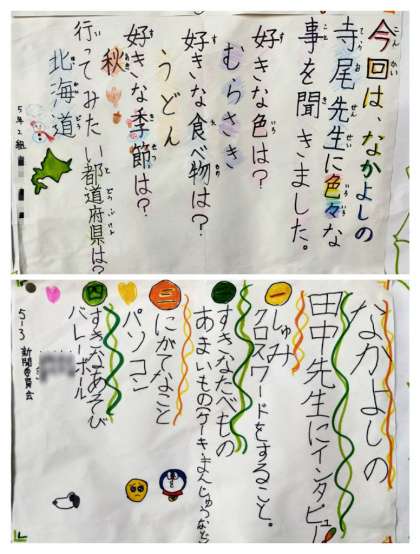 今回は、なかよしの
寺尾先生に色々な
事を聞きました。
好きな色は?
むらさき
好きな食べ物は?
うどん
好きな季節は?
秋
行ってみたい都道府県は?
北海道
5年2組
なかよしの
田中先生にインタビュー
一 しゅみ
クロスワードをすること。
すきなたべもの
あまいもの(ケーキ、まんじゅうなど)
三 にがてなこと
パソコン
四 すきなあそび
バレーボール
5-3 新聞委員会